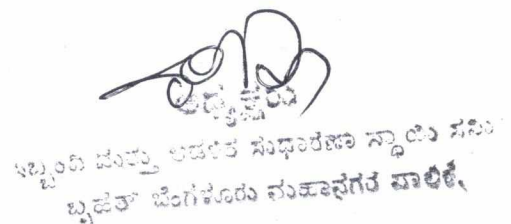 ಅಧ್ಯಕ್ಷರು
ಸಿಬ್ಬಂದಿ ಮತ್ತು ಆಡಳಿತ ಸುಧಾರಣಾ ಸ್ಥಾಯಿ ಸಮಿ
ಬೃಹತ್ ಬೆಂಗಳೂರು ಮಹಾನಗರ ಪಾಲಿಕೆ